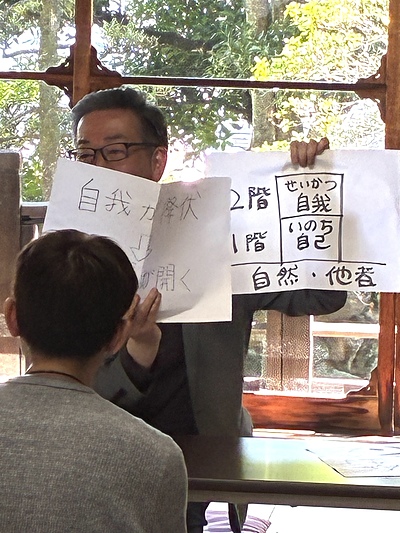 自我が降伏
⇩
が開く
2階
せいかつ
自我
1階
いのち
自己
自然・他者